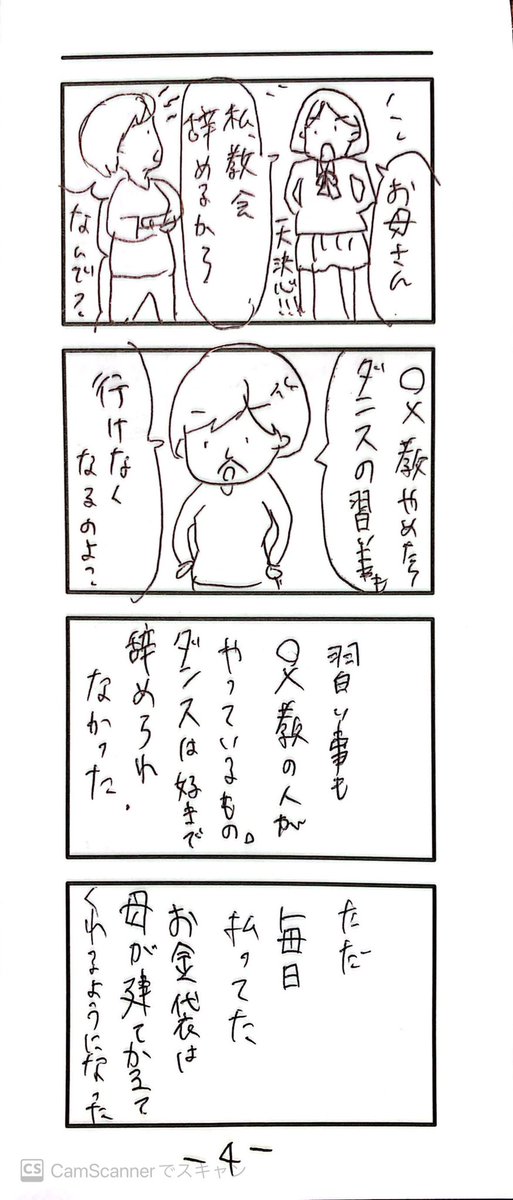 お母さん
一大決心!!!
私、教会
辞めるから
なんで?
〇×教やめたら
ダンスの習い事も
行けなく
なるのよ?
習い事も
〇×教の人が
やっているもの。
ダンスは好きで
辞められ
なかった。
ただ
毎日
払ってた
お金袋は
母が建てかえて
くれるようになった
-4-
CS CamScannerでスキャン